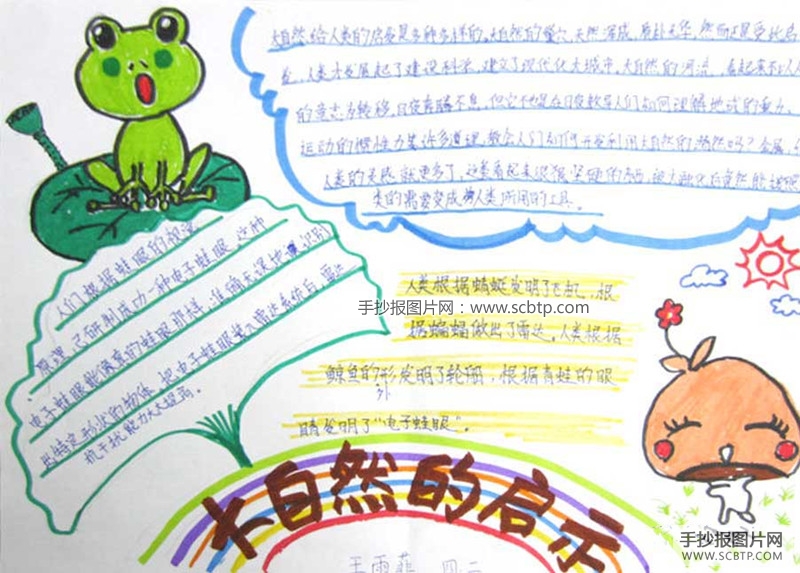 大自然给人类的启发是多种多样的。大自然的
天然深成，质朴无华，然而正是受此启
发，人类才发展起了建设科学，建立了现代化大城市，大自然的河流，看起来不以人
的意志为转移，日夜奔腾不息，但它不也是在日夜教导人们如何理解地球的重力，
运动的惯性力等许多道理，教会人们如何开发利用大自然的
人类的关照就更多了，这些看起来很狠坚硬的东西，
类的需要变成为人类所用的工具。
人们根据蛙眼的视觉
原理，已研制成功一种电子蛙眼，这种
电子蛙眼能像真的蛙眼那样，准确无误地识别
出特定形状的物体，把电子蛙眼装入雷达系统后，雷达
抗干扰能力大大提高。
人类根据蜻蜓发明了飞机，根
手抄报图片网：www.scbtp.com
据蝙蝠做出了雷达。人类根据
鲸鱼的外形发明了轮船，根据青蛙的眼
睛发明了“电子蛙眼”。
大自然的启示
王雨菲 四.二
手抄报图片网
WWW.SCBTP.COM